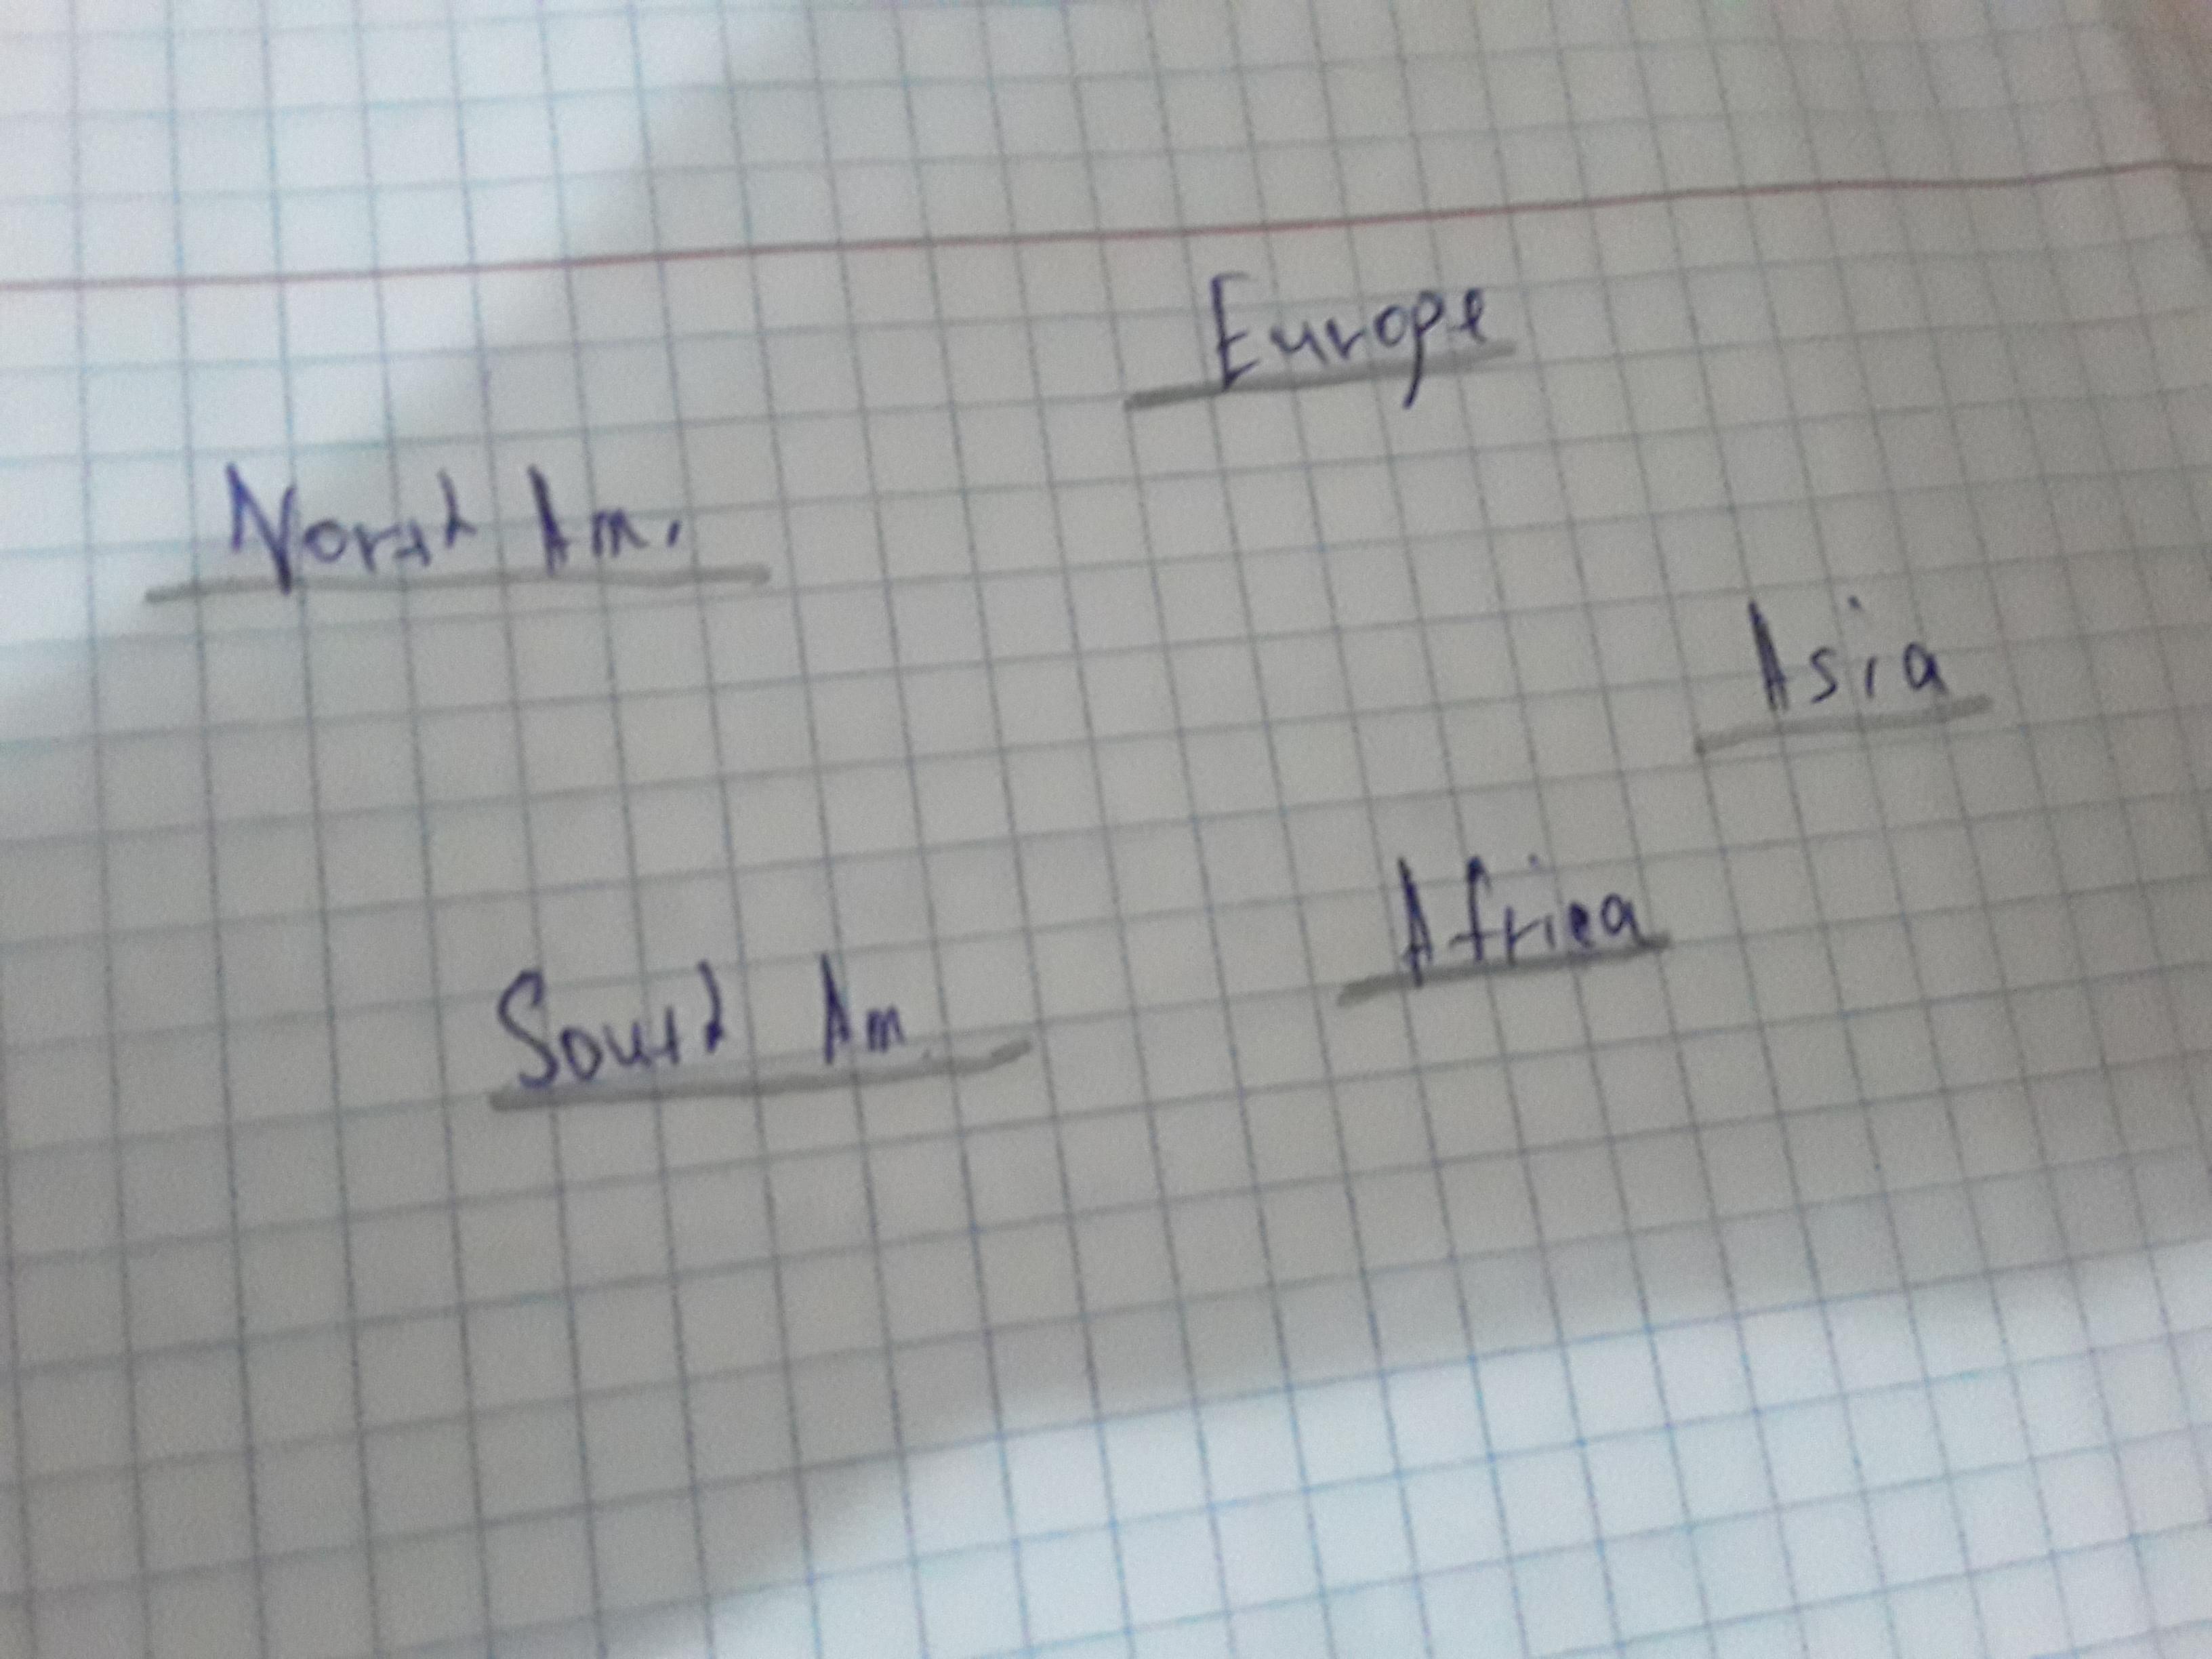 Europe
North Am.
Asia
Africa
South Am.